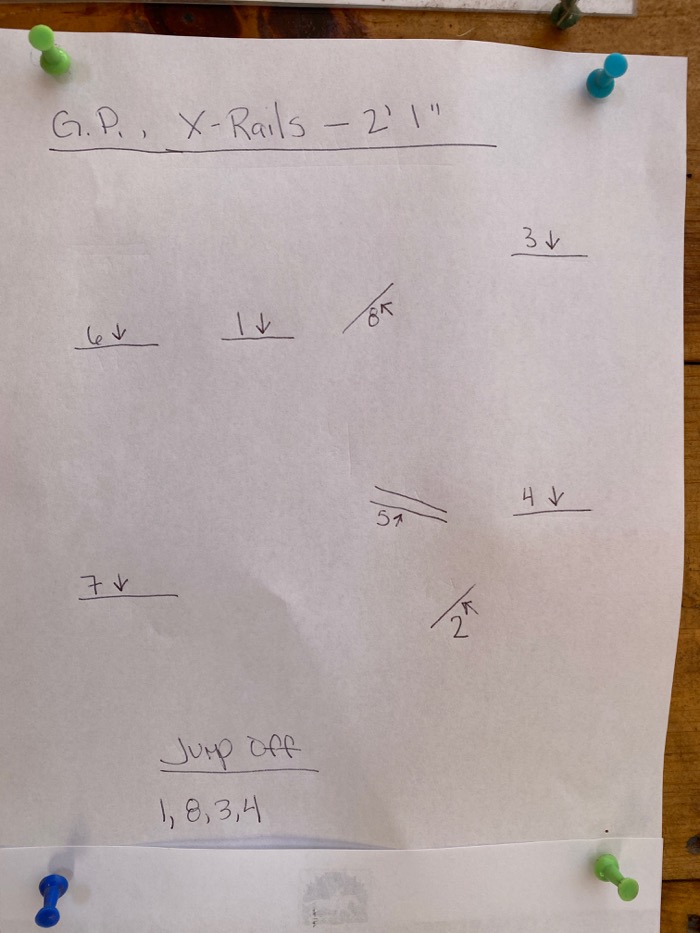 G.P., X-Rails - 2' 1"
3↓
6↓ 1↓ 8↖
4↓
5↗
7↓
2↖
Jump Off
1, 8, 3, 4